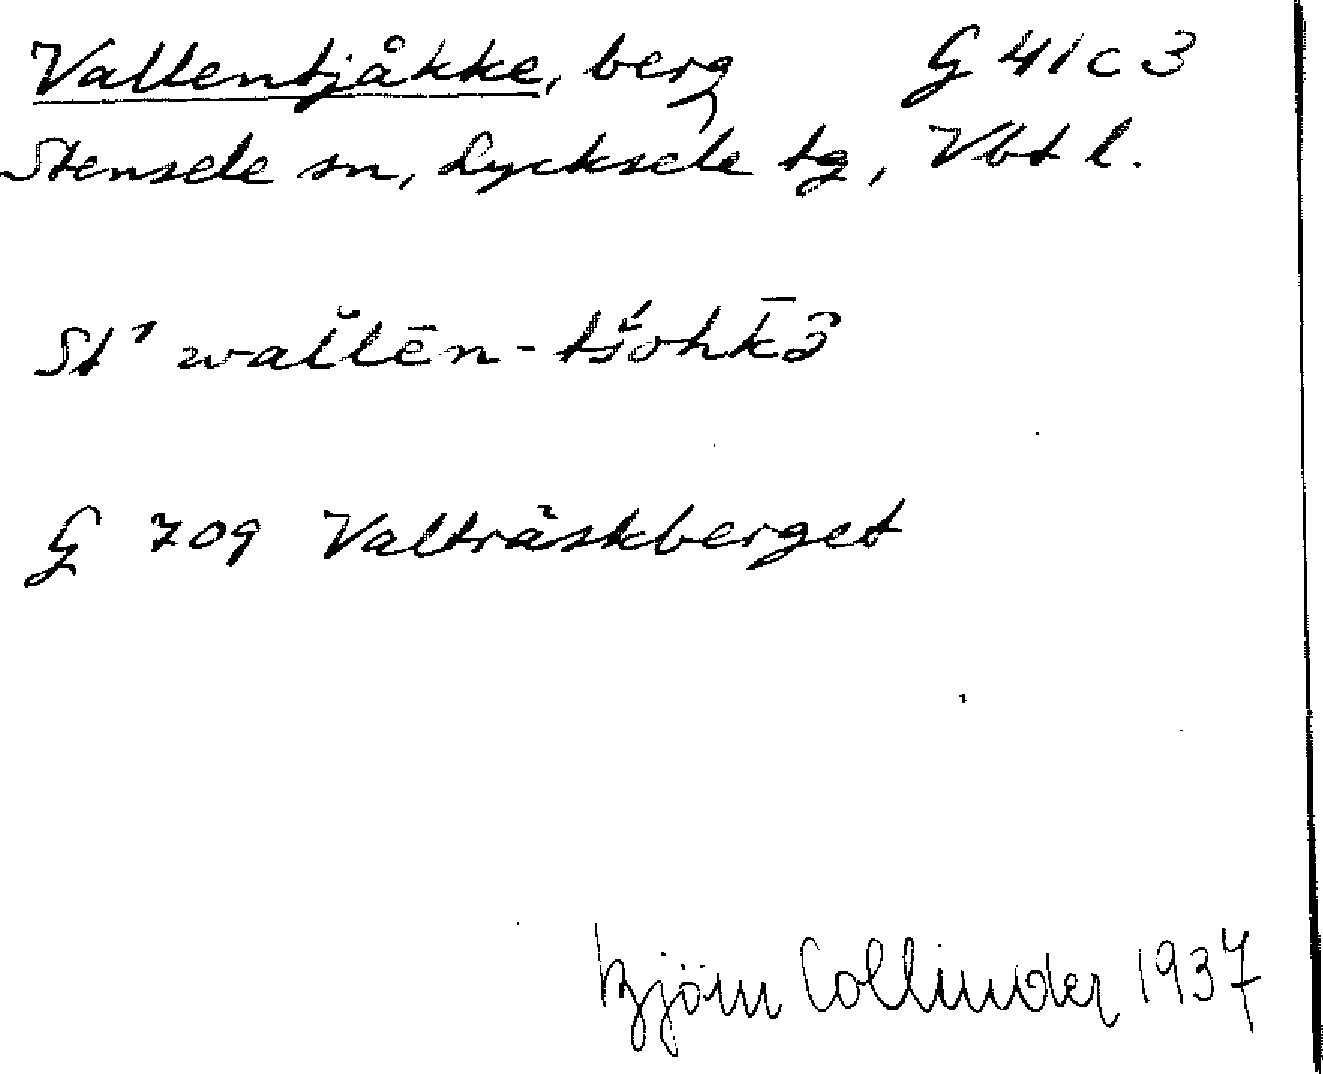 Vallentjåkke, berg G 41 c 3
Stensele sn, Lycksele tg, Vbt l.
St¹ wal̆lēn-tš́ohk̄ə̑
G 709 Valträskberget
Björn Collinder 1937